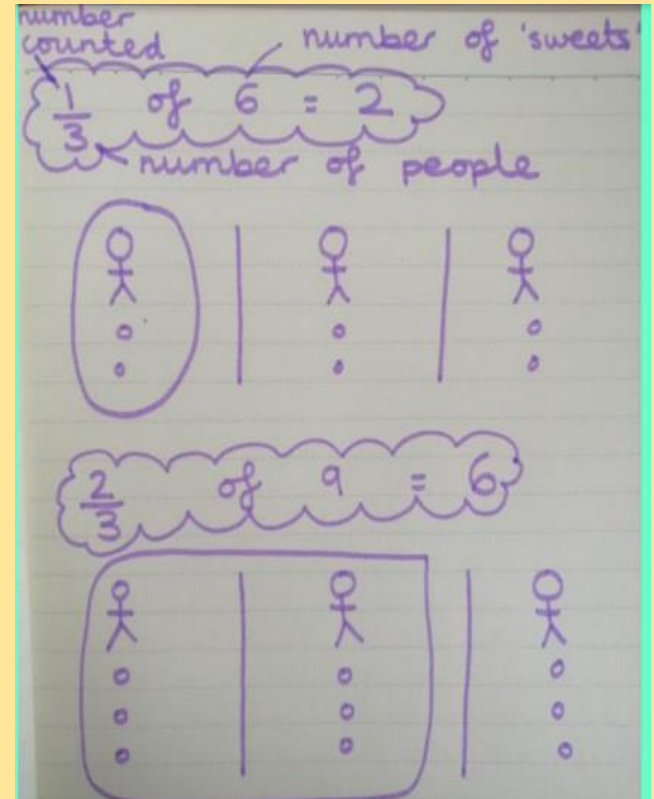 number
counted
number of 'sweets'
1/3 of 6 = 2
number of people
2/3 of 9 = 6